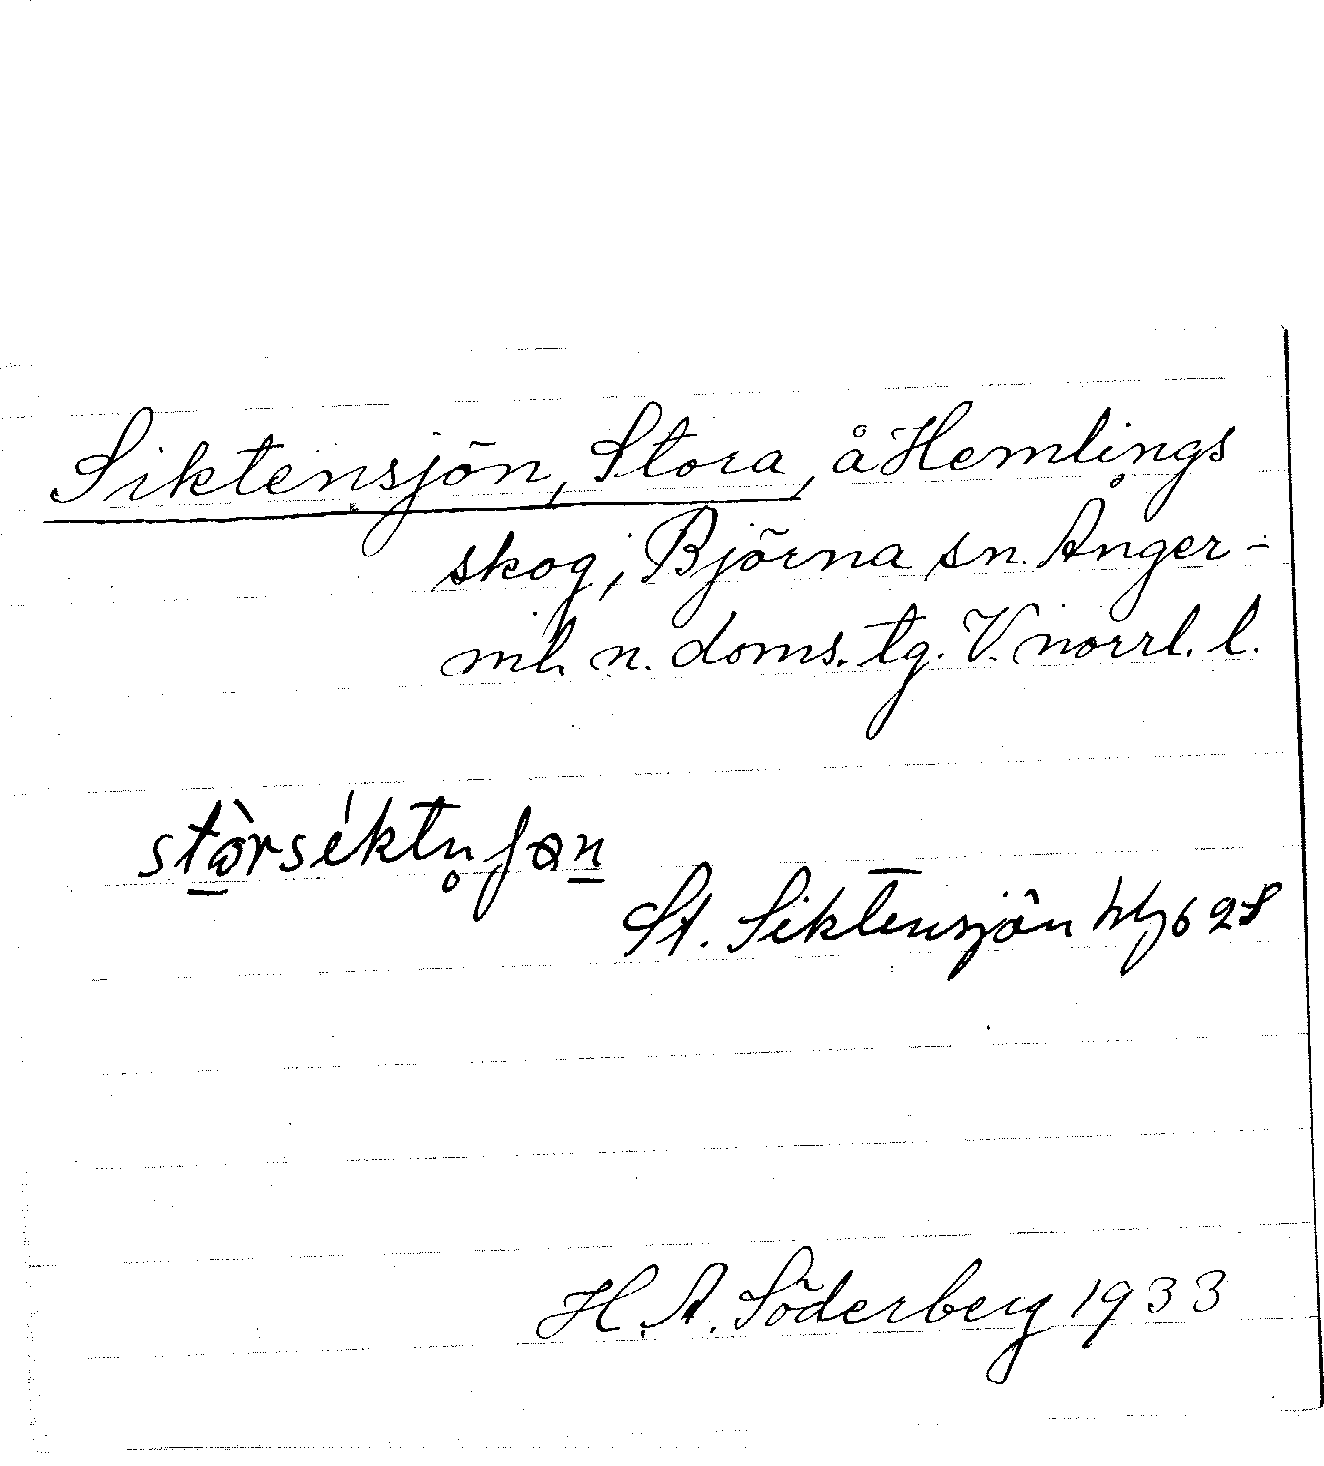 Siktensjön, Stora, å Hemlings
skog, Björna sn. Ånger-
ml. n. doms. tg. V. norrl. l.
stòrséktn̥ʃən
St. Siktensjön hbl 62S
H. A. Söderberg 1933